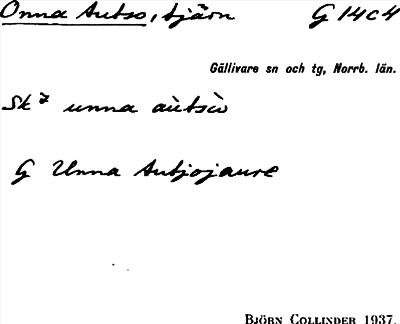 Onna Autso, tjärn G 14c4
Gällivare sn och tg, Norrb. län.
Sk⁷ unna àùtsò
G Unna Autjojaure
BJÖRN COLLINDER 1937.